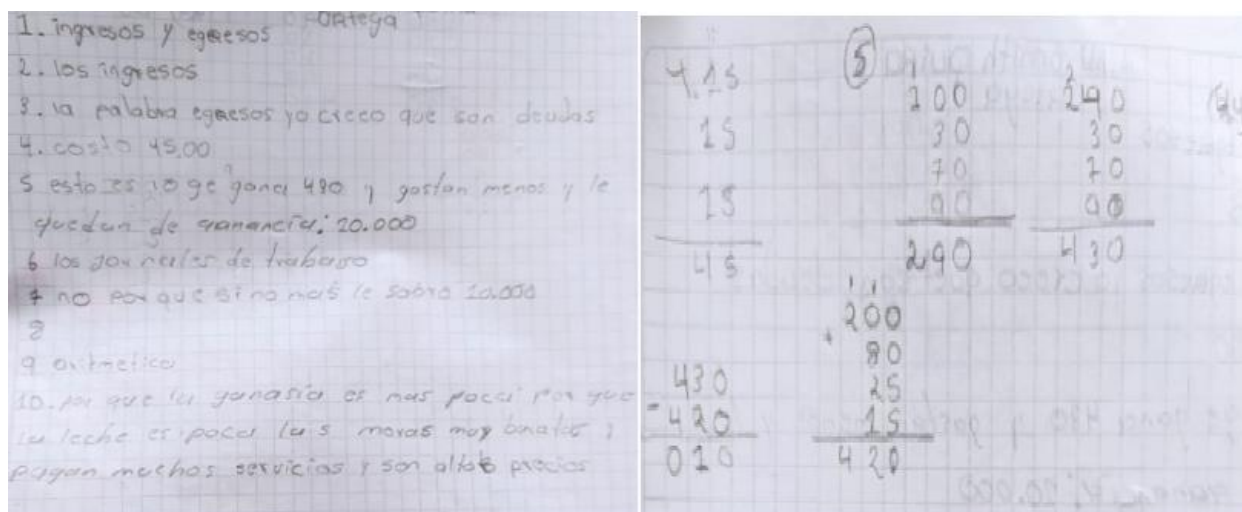 ortega
1. ingresos y egresos
2. los ingresos
3. la palabra egresos yo creeo que son deudas
4. costo 45.00
5 esto es lo ge gana 430 y gastan menos y le
quedan de ganancia: 10.000
6 los jornales de trabajo
7 no por que si no mas le sobra 10.000
8
9 aritmetica
10. por que la ganasia es mas poca por que
la leche es poca las moras muy baratas y
pagan muchos servicios y son altos precios
4. 15
15
15
45
5
1
200
30
70
90
290
2
290
30
20
90
430
11
200
+ 80
25
15
420
430
- 420
010
gana 430 y gastan menos y
10.000